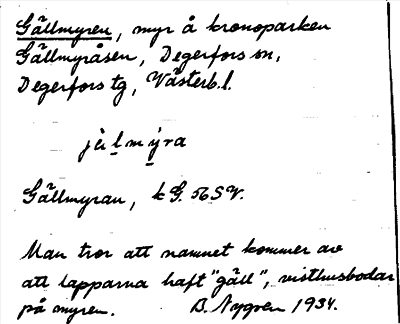 Gällmyren, myr å kronoparken
Gällmyråsen, Degerfors sn,
Degerfors tg, Västerb. l.
jèlmýra
Gällmyran, kG. 56SV.
Man tror att namnet kommer av
att lapparna haft "gäll", visthusbodar
på myren. B. Nygren 1934.